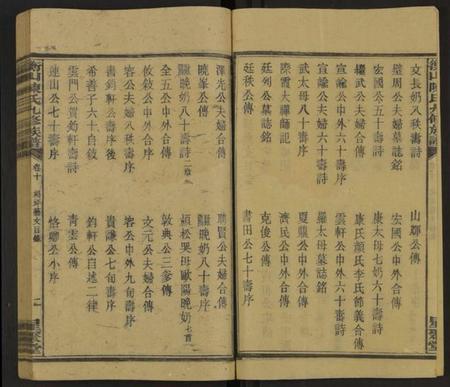 文長奶八秩壽詩
山鄰公傳
璧周公夫婦墓誌銘
宏國公中外合傳
宏國公五十壽詩
康太母七奶六十壽詩
繼武公夫婦合傳
康氏顏氏李氏節義合傳
宣諭公中外六十壽序
雲軒公中外六十壽詩
宣諭公夫婦六十壽詩
羅太母墓誌銘
武太母八十壽序
夏鼎公中外合傳
際霞大禪師記
濟民公中外合傳
廷列公墓誌銘
克俊公傳
廷秩公傳
書田公七十壽序
澤光公夫婦合傳
聯賢公夫婦合傳
曉峯公傳
曉奶八十壽序
曉奶八十壽詩二章
桓松哭母歐陽晚奶七首
全五公中外合傳
敦典公三爹傳
攸敘公夫婦合傳
文元公夫婦合傳
容公夫婦八秩壽序
客公中外九旬壽序
書鈞軒公壽序後
貴謙公七旬壽序
希善子六十自敘
鈞軒公自述二律
雲門公賈鈞軒壽詩
青雲公傳
連山公七十壽序
恪卿公小序
衡山陳氏九修族譜
卷十
藝文目錄
二
星聚堂